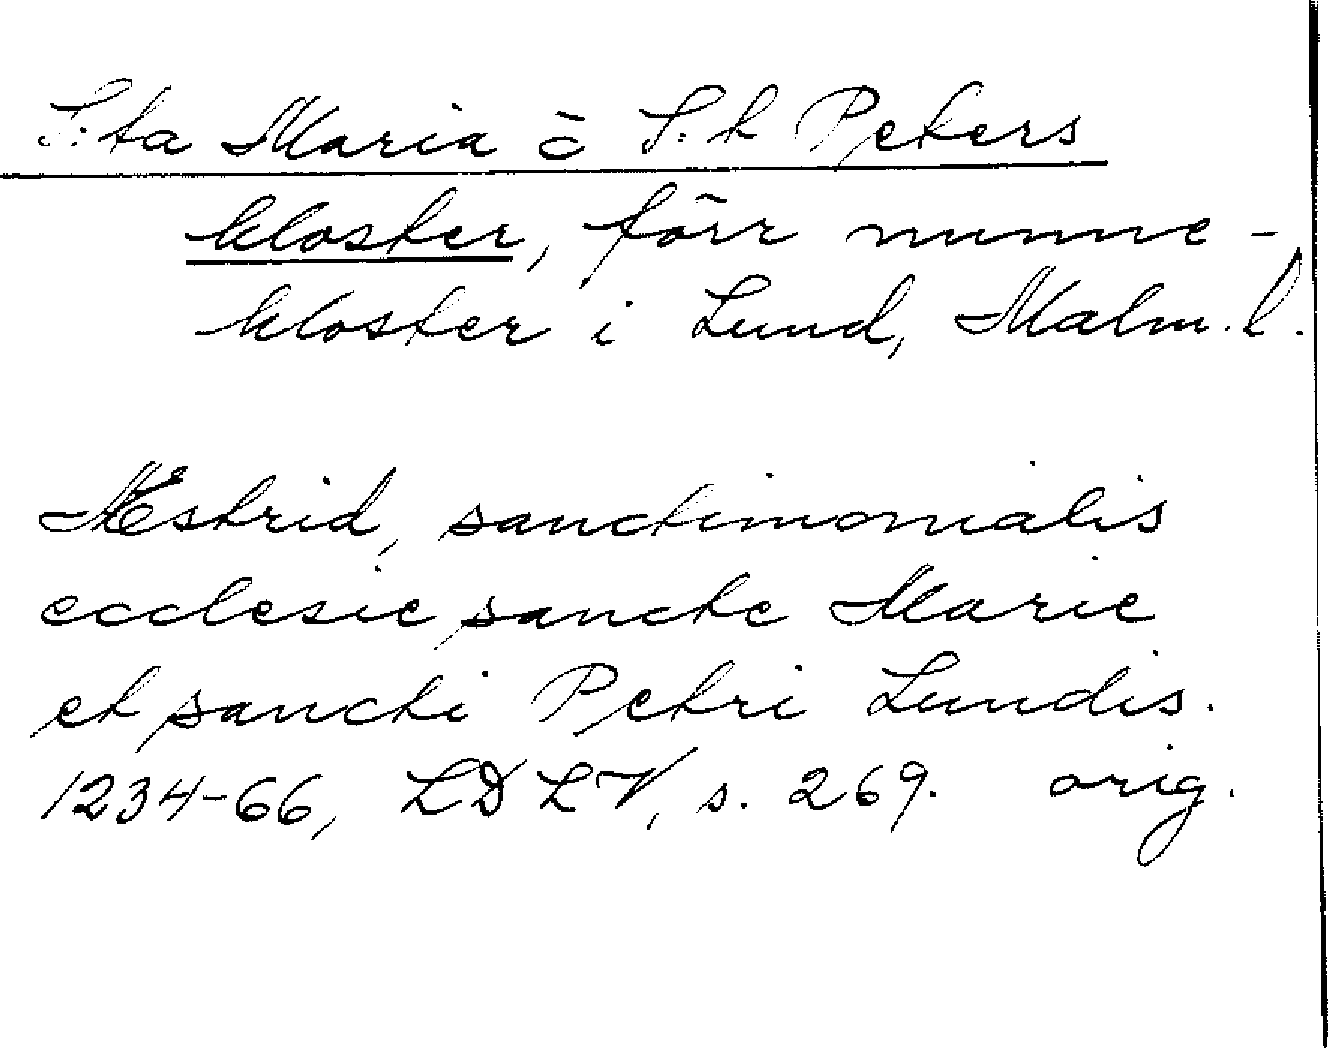 S:ta Maria o S:t Peters
kloster, förr nunne-
kloster i Lund, Malm. l.
Æstrid, sanctimonialis
ecclesie sancte Marie
et sancti Petri Lundis.
1234-66, LDLV, s. 269. orig.